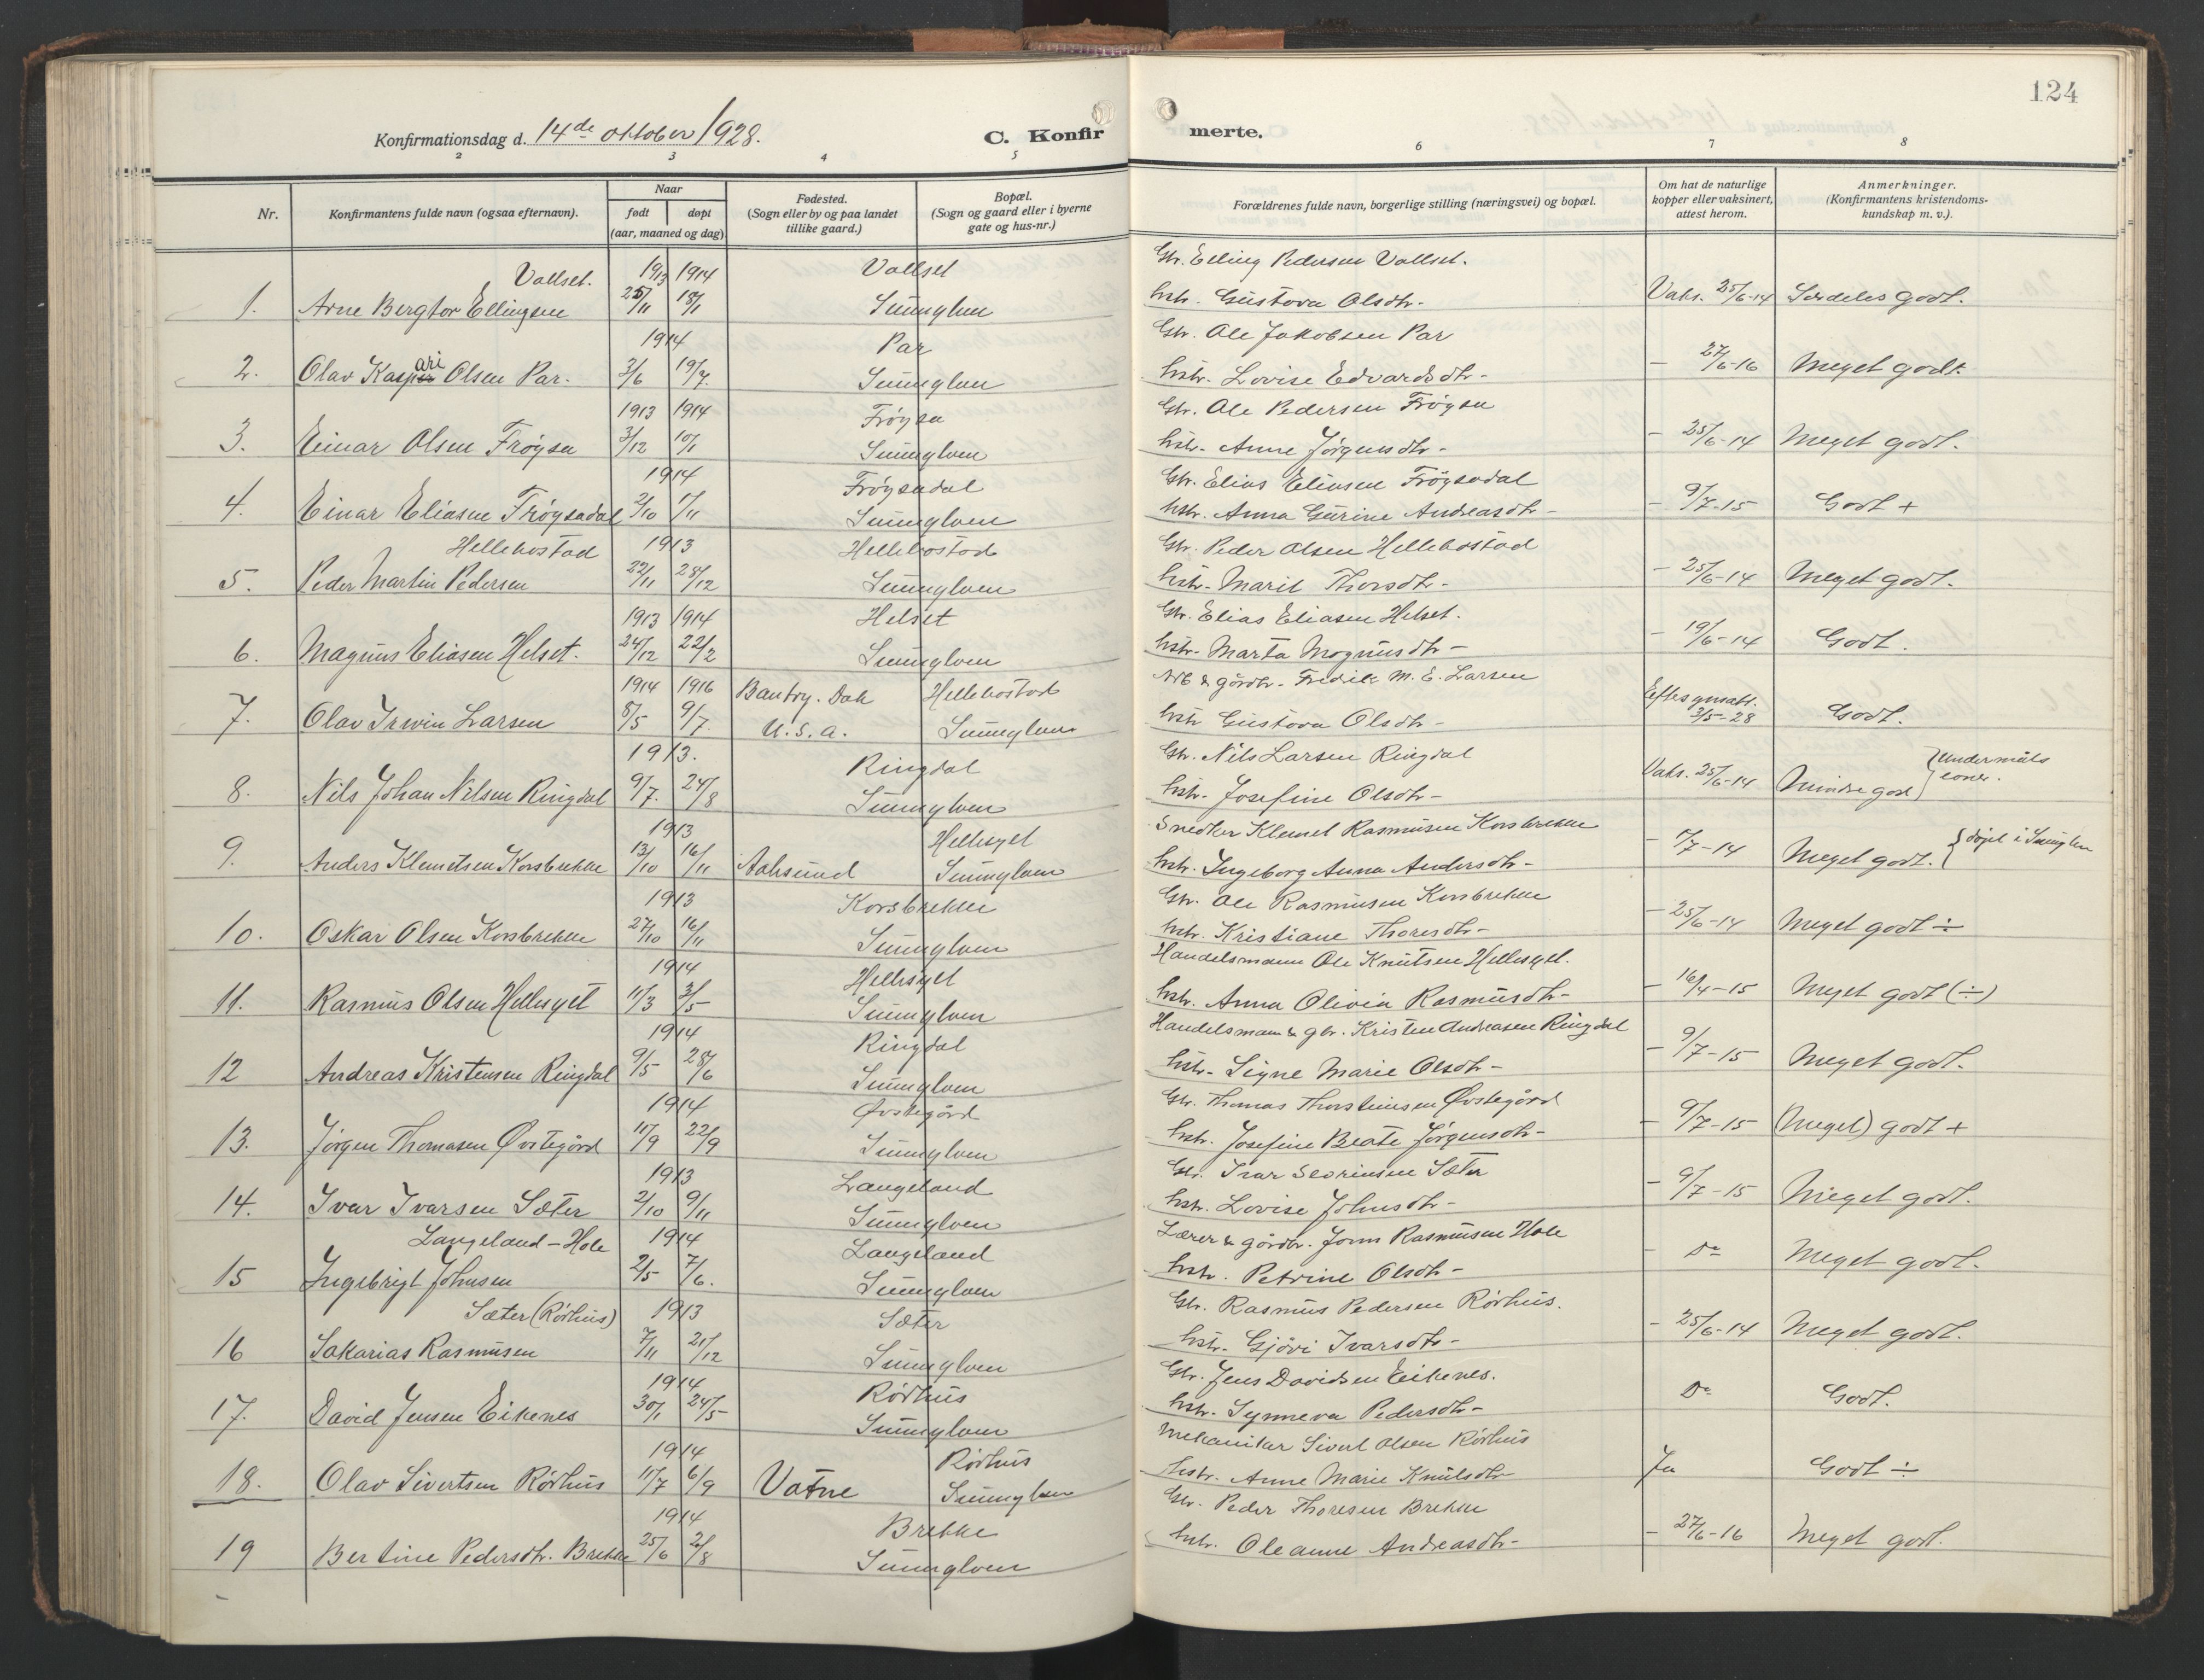 124
Konfirmationsdag d. 14de oktober 1928.
C. Konfirmerte.
2 3 4 5 6 7 8
Nr.
Konfirmantens fulde navn (ogsaa efternavn).
Naar
født døpt
(aar, maaned og dag)
Fødested.
(Sogn eller by og paa landet
tillike gaard.)
Bopæl.
(Sogn og gaard eller i byerne
gate og hus-nr.)
Forældrenes fulde navn, borgerlige stilling (næringsvei) og bopæl.
Om hat de naturlige
kopper eller vaksinert,
attest herom.
Anmerkninger.
(Konfirmantens kristendoms-
kundskap m. v.).
Vallset. 1913 1914 Vallset Gbr. Elling Pedersen Vallset.
1. Arne Bergtor Ellingsen 25/11 18/1 Sunnylven hstr. Gustava Olsdtr. Vaks. 25/6-14 Særdeles godt.
1914 Par Gbr. Ole Jakobsen Par
2. Olav Kaspari Olsen Par. 3/6 19/7. Sunnylven hstr. Lovise Edvardsdtr - — 27/6-16 Meget godt.
1913 1914 Frøysa Gbr. Ole Pedersen Frøysa
3. Einar Olsen Frøysa 3/12 10/1 Sunnylven hstr. Anne Jørgensdtr - — 25/6-14 Meget godt.
1914 Frøysadal Gbr. Elias Eliasen Frøysadal
4. Einar Eliasen Frøysadal 2/10 1/11 Sunnylven hstr. Anna Gurine Andreasdtr - — 9/7-15 Godt +
Hellebostad 1913 Hellebostad Gbr. Peder Olsen Hellebostad
5. Peder Martin Pedersen 22/11 28/12 Sunnylven hstr. Marit Thorsdtr - — 25/6-14 Meget godt.
1913 1914 Helset Gbr. Elias Eliasen Helset.
6. Magnus Eliasen Helset. 24/12 22/2 Sunnylven hstr. Marta Magnusdtr - — 19/6-14 Godt.
1914 1916 Bantry. Dak Hellebostad Arb & gårdbr. Fredik M. E. Larsen Eftes ynsatt.
7. Olav Irwin Larsen 8/5 9/7. U.S.A. Sunnylven hstr Gustava Olsdtr - 3/5-28 Godt.
1913. Ringdal Gbr. Nils Larsen Ringdal Undermåls
8. Nils Johan Nilsen Ringdal 9/7. 24/8 Sunnylven hstr. Josefine Olsdtr - Vaks. 25/6-14 Mindre godt } evner.
1913 Hellesylt Snedker Klemet Rasmusen Korsbrekke
9. Anders Klemetsen Korsbrekke 13/10 16/11 Aalesund Sunnylven hstr. Ingeborg Anna Andersdtr - — 1/7-14 Meget godt. { døpt i Sunnylven
1913 Korsbrekke Gbr. Ole Rasmusen Korsbrekke
10. Oskar Olsen Korsbrekke 27/10 16/11 Sunnylven hstr. Kristiane Thoresdtr - — 25/6-14 Meget godt ÷
1914 Hellesylt Handelsmann Ole Knutsen Hellesylt.
11. Rasmus Olsen Hellesylt 11/3 3/5 Sunnylven hstr. Anna Olivia Rasmusdtr - — 16/4-15 Meget godt (÷)
1914 Ringdal Handelsmann & gbr. Kristen Andreasen Ringdal
12 Andreas Kristensen Ringdal 9/5 28/6 Sunnylven hstr. Signe Marie Olsdtr - — 9/7-15 Meget godt.
1914 Øvstegård Gbr. Thomas Thorsteinsen Øvstegård
13. Jørgen Thomasen Øvstegård 11/9 22/9 Sunnylven hstr. Josefine Beate Jørgensdtr - — 9/7-15 (Meget) godt +
1913 Langeland Gbr. Ivar Sevrinsen Sæter
14. Ivar Ivarsen Sæter 2/10 9/11 Sunnylven hstr. Lovise Johnsdtr - — 9/7-15 Meget godt.
Langeland - Hole 1914 Langeland Lærer & gårdbr. Jonn Rasmusen Hole
15 Ingebrigt Johnsen 2/5 7/6. Sunnylven hstr. Petrine Olsdtr - — Do Meget godt.
Sæter (Rørhus) 1913 Sæter Gbr. Rasmus Pedersen Rørhus.
16 Sakarias Rasmusen 7/11 21/12 Sunnylven hstr. Gjøri Ivarsdtr - — 25/6-14 Meget godt.
1914 Rørhus Gbr. Jens Davidsen Eikenes.
17. David Jensen Eikenes 30/1 24/5 Sunnylven hstr. Synneva Pedersdtr - Do Godt.
1914 Rørhus Mekaniker Sivert Olsen Rørhus
18. Olav Sivertsen Rørhus 11/7 6/9 Vatne Sunnylven hstr. Anne Marie Knutsdtr Ja Godt ÷
1914 Brekke Gbr. Peder Thoresen Brekke
19 Bertine Pedersdtr. Brekke 25/6 2/8 Sunnylven hstr. Oleanne Andreasdtr - — 27/6-16 Meget godt.